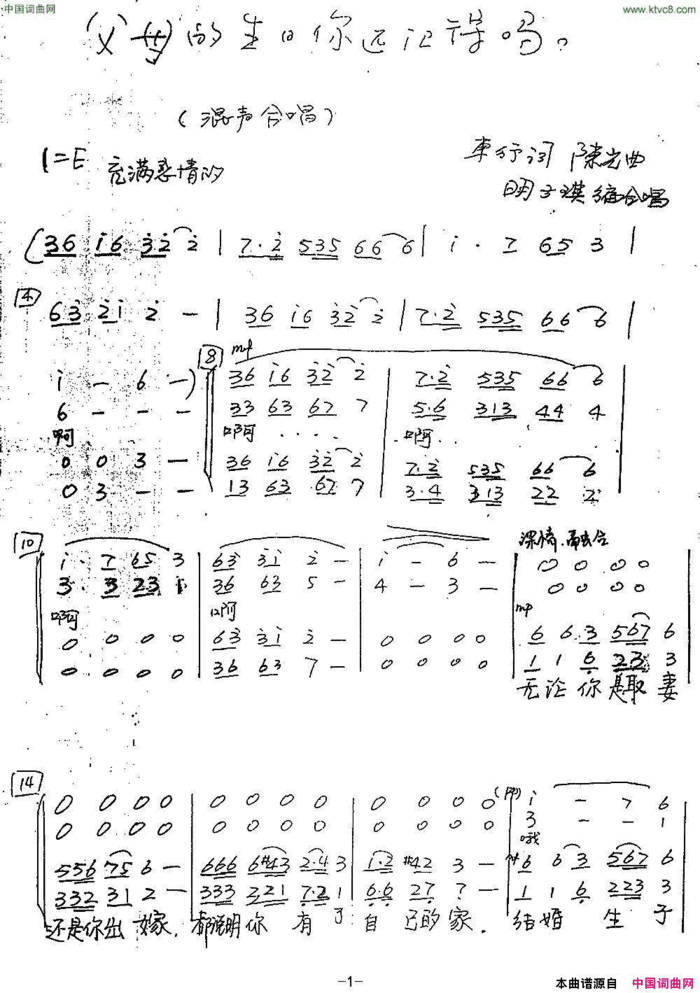 中国词曲网
www.ktvc8.com
父母的生日你还记得吗。
(混声合唱)
1=E
词 陈光曲
编合唱
(36 i6 32 2 | 7·2 535 66 6 | i · 7 65 3 |
4
63 2i 2 — | 36 i6 32 2 | 7·2 535 66 6 |
8
mp
i — 6 —) 36 i6 32 2 | 7·2 535 66 6
6 — — — 33 63 67 7 | 5·6 313 44 4
啊 啊 · · · · 啊 · · ·
0 0 3 — 36 i6 32 2 | 7·2 535 66 6
0 3 — — 13 63 67 7 | 3·4 313 22 2
10
i · 7 65 3 | 63 3i 2 — | i — 6 — | 0 0 0 0
3· 3 23 1 | 36 63 5 — | 4 — 3 — | 0 0 0 0
啊 啊 mp
0 0 0 0 | 63 3i 2 — | 0 0 0 0 | 6 6 3 567 6
0 0 0 0 | 36 63 7 — | 0 0 0 0 | 1 1 6 23 3
无论你是取妻
14
0 0 0 0 | 0 0 0 0 | 0 0 0 0 | i — 7 6
0 0 0 0 | 0 0 0 0 | 0 0 0 0 | 3 — — 1
哦
556 75 6 — | 666 6#43 2·4 3 | 1·2 #42 3 — | 6 6 3 567 6
332 31 2 — | 333 321 7·2 1 | 6·6 27 7 — | 1 1 6 223 3
还是你出嫁,都说明你有了自己的家. 结婚生子
-1-
本曲谱源自 中国词曲网